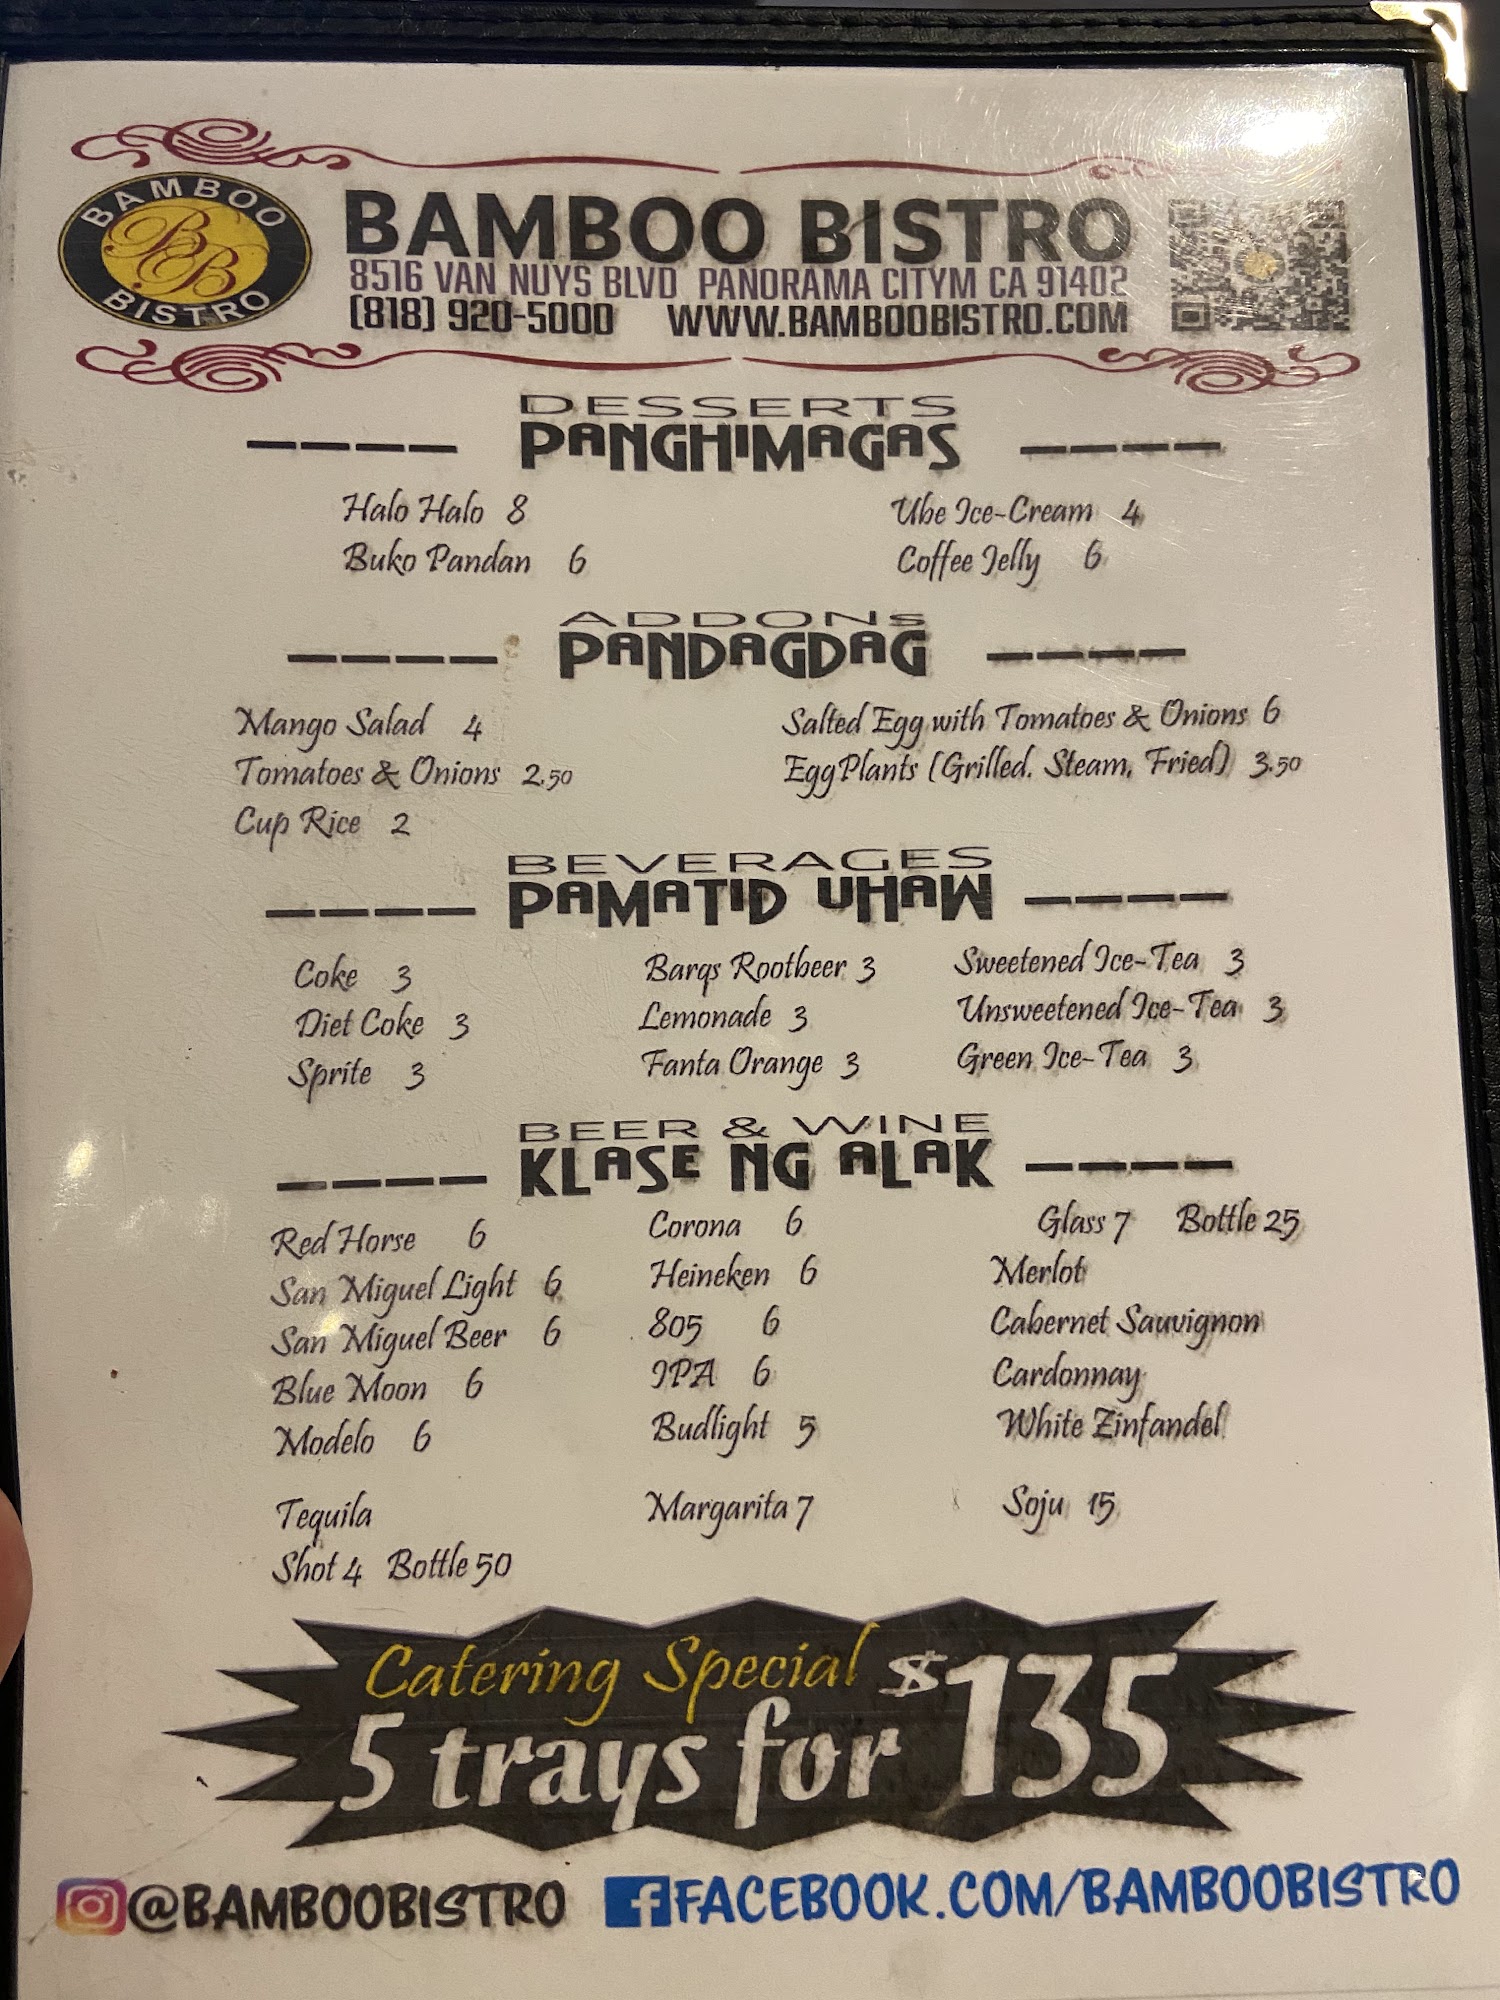 BAMBOO BISTRO
BB
BAMBOO BISTRO
8516 VAN NUYS BLVD PANORAMA CITYM CA 91402
(818) 920-5000 WWW.BAMBOOBISTRO.COM
DESSERTS
PANGHIMAGAS
Halo Halo 8 Ube Ice-Cream 4
Buko Pandan 6 Coffee Jelly 6
ADDONS
PANDAGDAG
Mango Salad 4 Salted Egg with Tomatoes & Onions 6
Tomatoes & Onions 2.50 EggPlants (Grilled. Steam, Fried) 3.50
Cup Rice 2
BEVERAGES
PAMATID UHAW
Coke 3 Barqs Rootbeer 3 Sweetened Ice-Tea 3
Diet Coke 3 Lemonade 3 Unsweetened Ice-Tea 3
Sprite 3 Fanta Orange 3 Green Ice-Tea 3
BEER & WINE
KLASE NG ALAK
Red Horse 6 Corona 6 Glass 7 Bottle 25
San Miguel Light 6 Heineken 6 Merlot
San Miguel Beer 6 805 6 Cabernet Sauvignon
Blue Moon 6 IPA 6 Cardonnay
Modelo 6 Budlight 5 White Zinfandel
Tequila Margarita 7 Soju 15
Shot 4 Bottle 50
Catering Special $135
5 trays for
@BAMBOOBISTRO FACEBOOK.COM/BAMBOOBISTRO